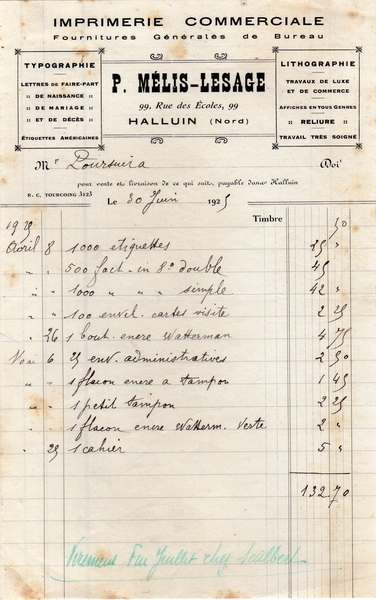 IMPRIMERIE COMMERCIALE
Fournitures Générales de Bureau
TYPOGRAPHIE
LETTRES DE FAIRE-PART
" DE NAISSANCE "
" DE MARIAGE "
" ET DE DÉCÈS "
ÉTIQUETTES AMÉRICAINES
P. MÉLIS-LESAGE
99, Rue des Écoles, 99
HALLUIN (Nord)
LITHOGRAPHIE
TRAVAUX DE LUXE
ET DE COMMERCE
AFFICHES EN TOUS GENRES
" RELIURE "
TRAVAIL TRÈS SOIGNÉ
Mr Doit
pour vente et livraison de ce qui suit, payable dans Halluin
R. C. TOURCOING 3123
Le 30 Juin 1925
Timbre 50
1925
Avril 8 1000 etiquettes 25 "
" " 500 fact. in 8° double 45
" " 1000 " " " simple 42 "
" " 100 envel. cartes visite 2 25
" 26 1 bout. encre Watterman 4 75
Mai 6 25 env. administratives 2 50
" " 1 flacon encre a tampon 1 45
" " 1 petit tampon 2 25
" " 1 flacon encre Watterm. Verte 2 "
" 25 1 cahier 5 "
132 70
Virement Fin Juillet chez Scalbert